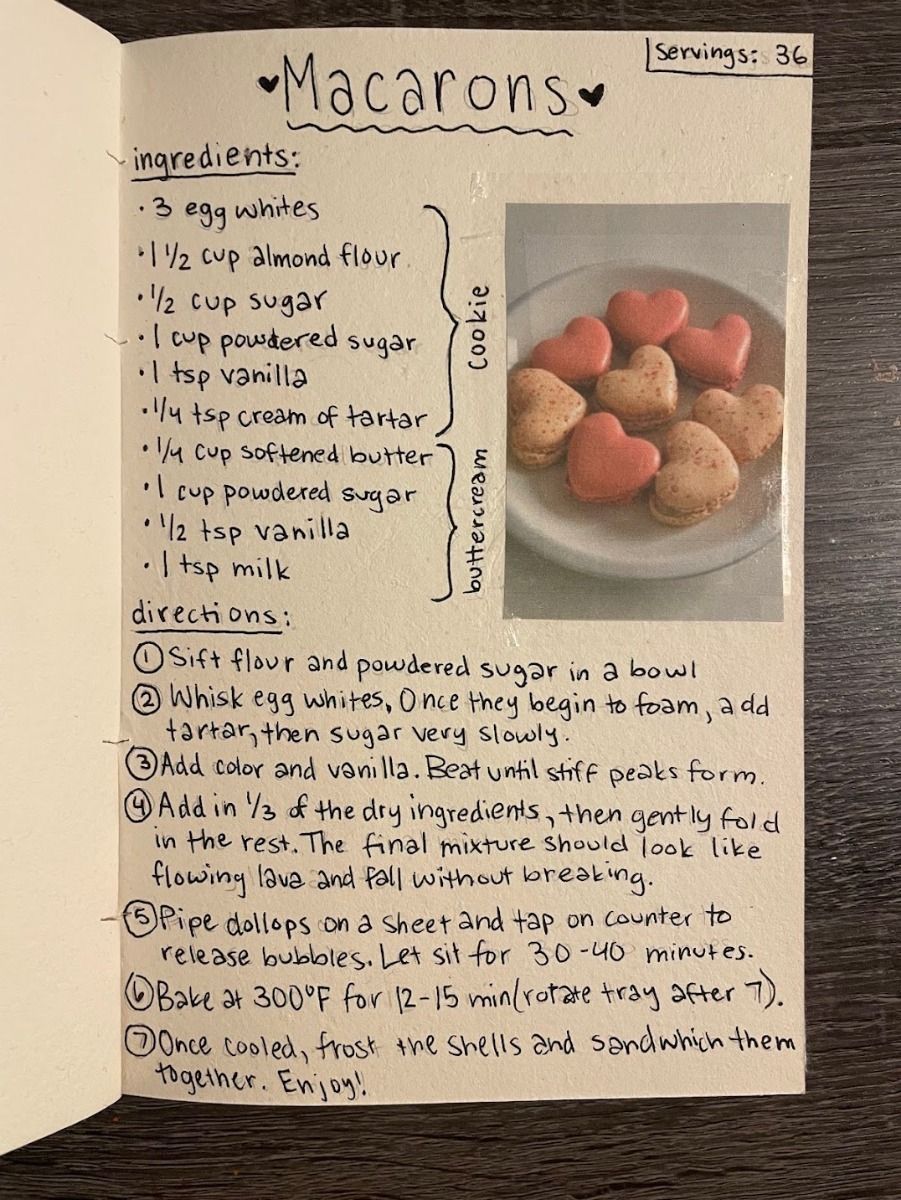 Servings: 36
Macarons
ingredients:
· 3 egg whites
· 1 1/2 cup almond flour
· 1/2 cup sugar
· 1 cup powdered sugar
· 1 tsp vanilla
· 1/4 tsp cream of tartar
cookie
· 1/4 cup softened butter
· 1 cup powdered sugar
· 1/2 tsp vanilla
· 1 tsp milk
buttercream
directions:
① Sift flour and powdered sugar in a bowl
② Whisk egg whites, Once they begin to foam, add
tartar, then sugar very slowly.
③ Add color and vanilla. Beat until stiff peaks form.
④ Add in 1/3 of the dry ingredients, then gently fold
in the rest. The final mixture should look like
flowing lava and fall without breaking.
⑤ Pipe dollops on a sheet and tap on counter to
release bubbles. Let sit for 30-40 minutes.
⑥ Bake at 300°F for 12-15 min (rotate tray after 7).
⑦ Once cooled, frost the shells and sandwhich them
together. Enjoy!